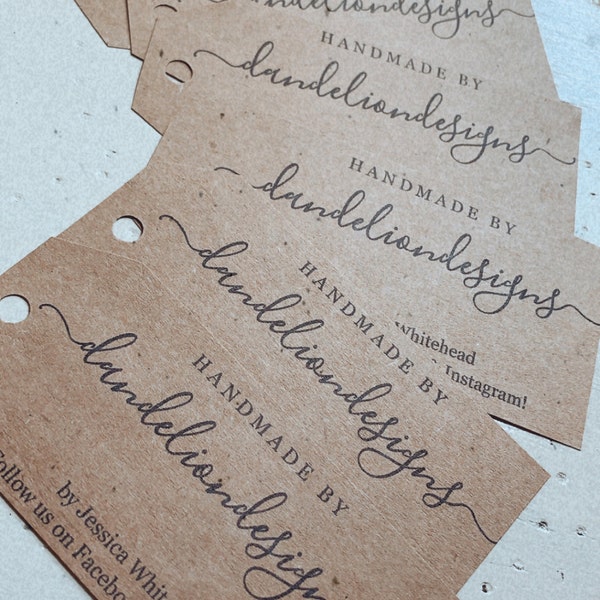 dandeliondesigns
HANDMADE BY
dandeliondesigns
HANDMADE BY
dandeliondesigns
Whitehead
Instagram!
HANDMADE BY
dandeliondesigns
HANDMADE BY
dandeliondesigns
by Jessica Whit
Follow us on Facebo